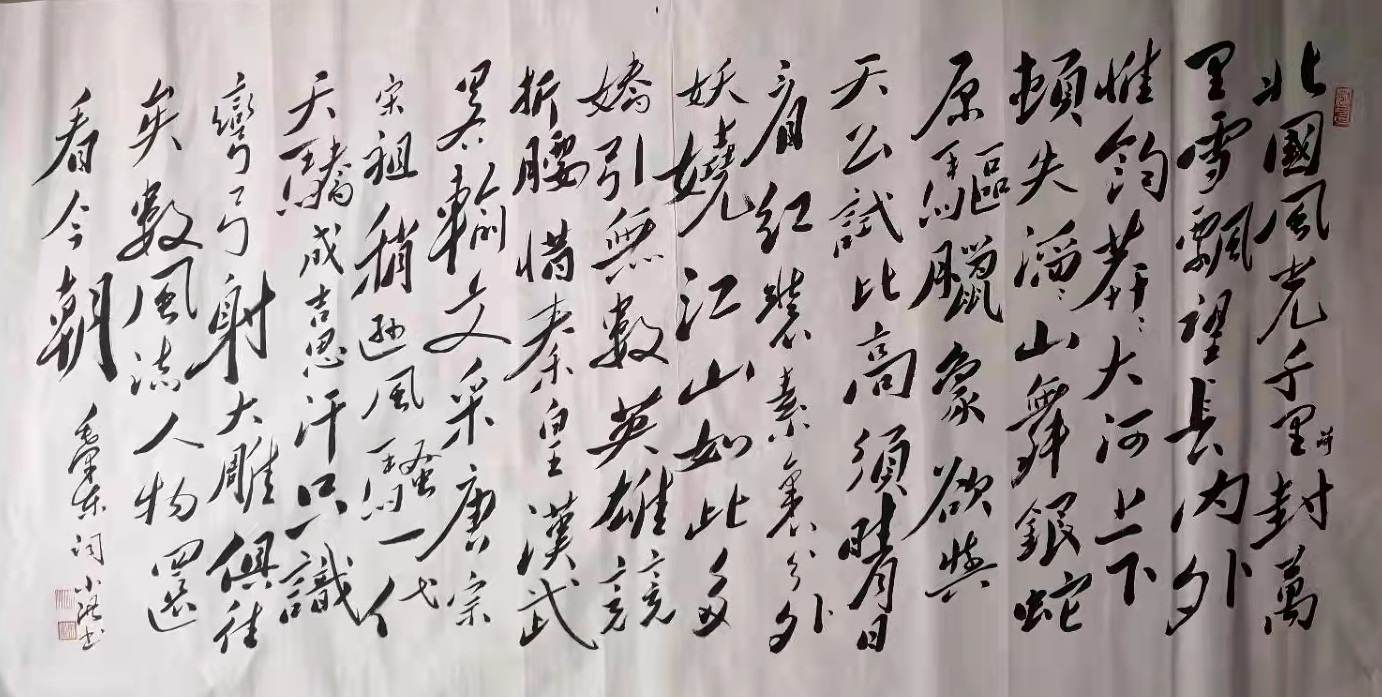 北國風光千里冰封萬
里雪飄望長内外
惟餘莽〻大河上下
頓失滔〻山舞銀蛇
原驅臘象欲與
天公試比高須晴日
看红裝素裹分外
妖嬈江山如此多
嬌引無數英雄競
折腰惜秦皇漢武
畧輸文采唐宗
宋祖稍遜風騷一代
天驕成吉思汗只識
彎弓射大雕俱往
矣數風流人物還
看今朝
毛澤東词